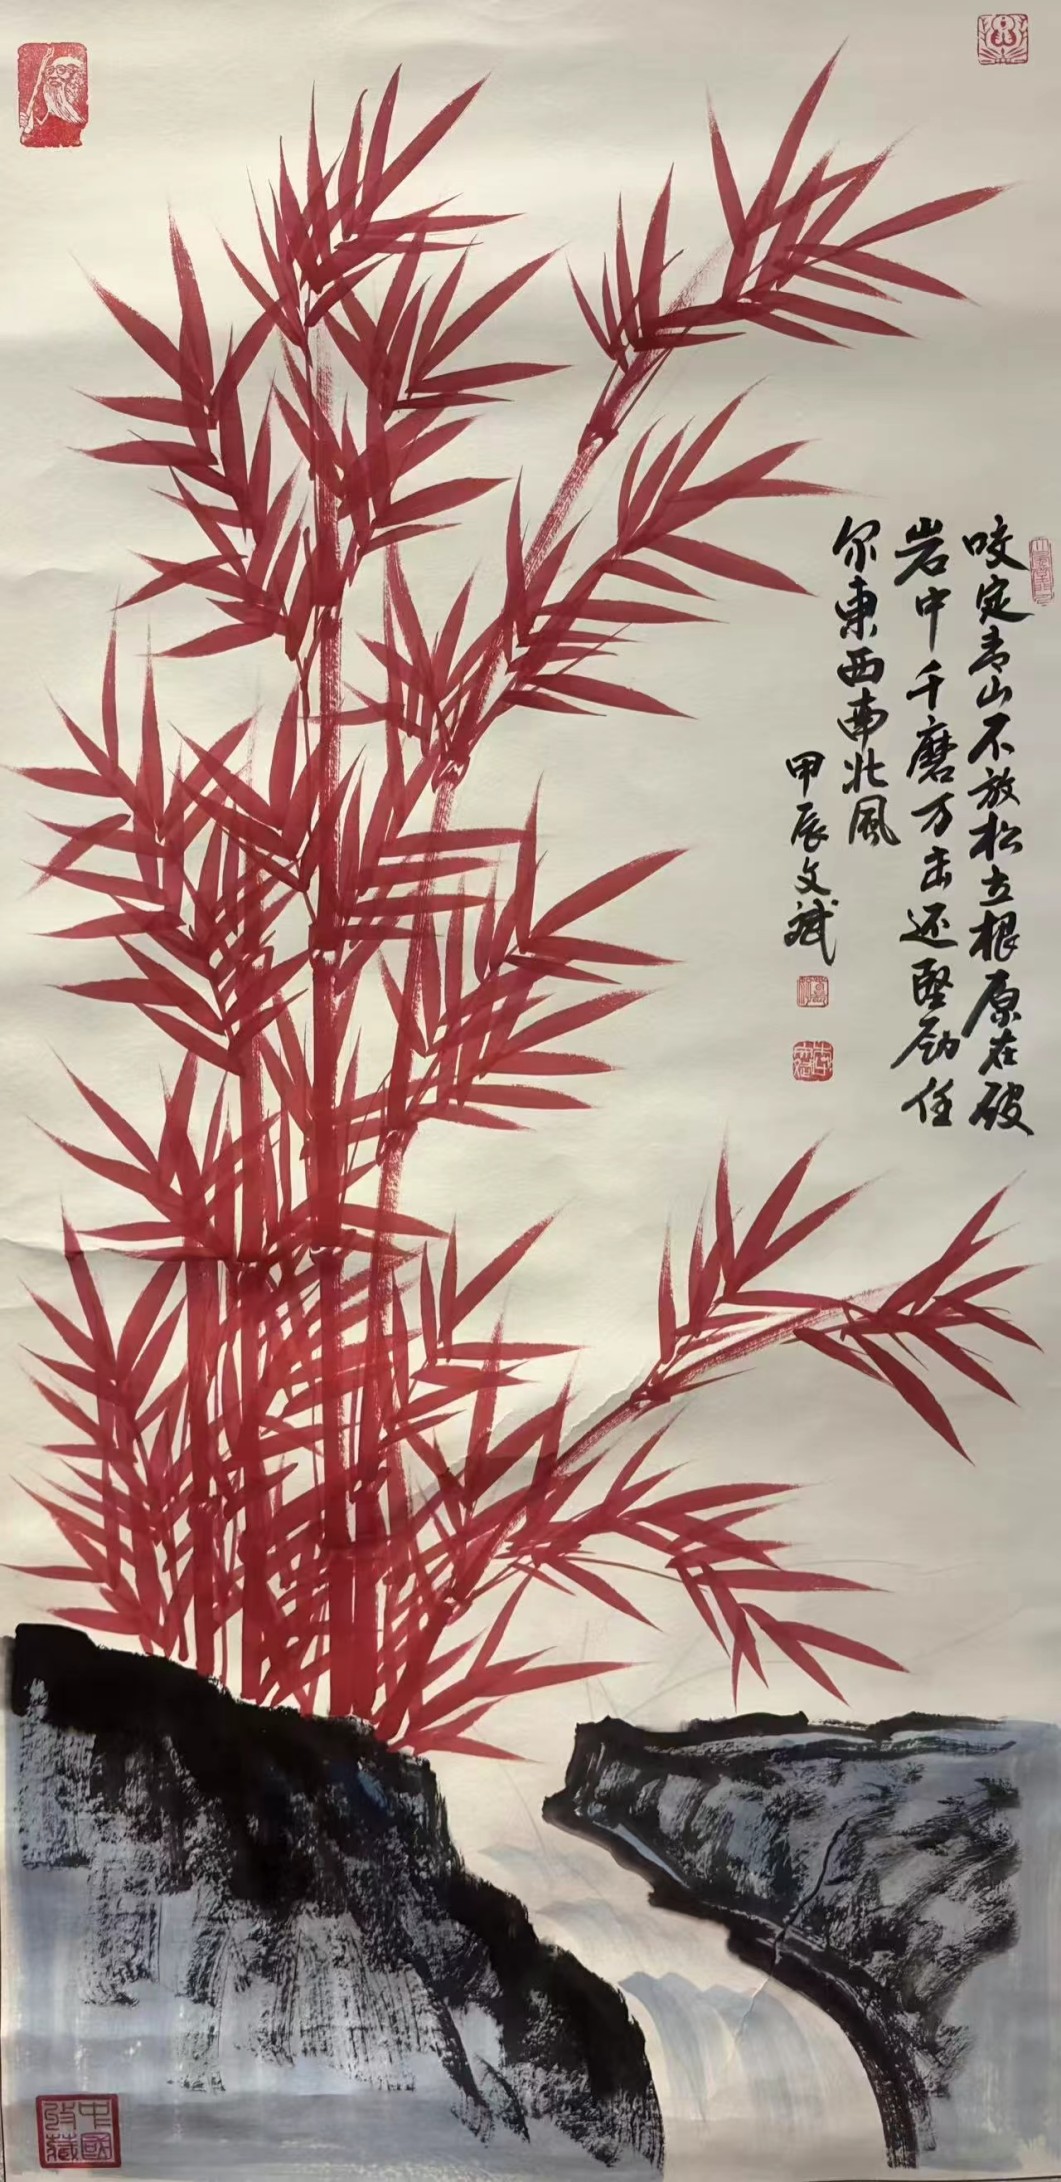 咬定青山不放松立根原在破
岩中千磨万击还坚劲任
尔东西南北风
甲辰文斌
中國
收藏